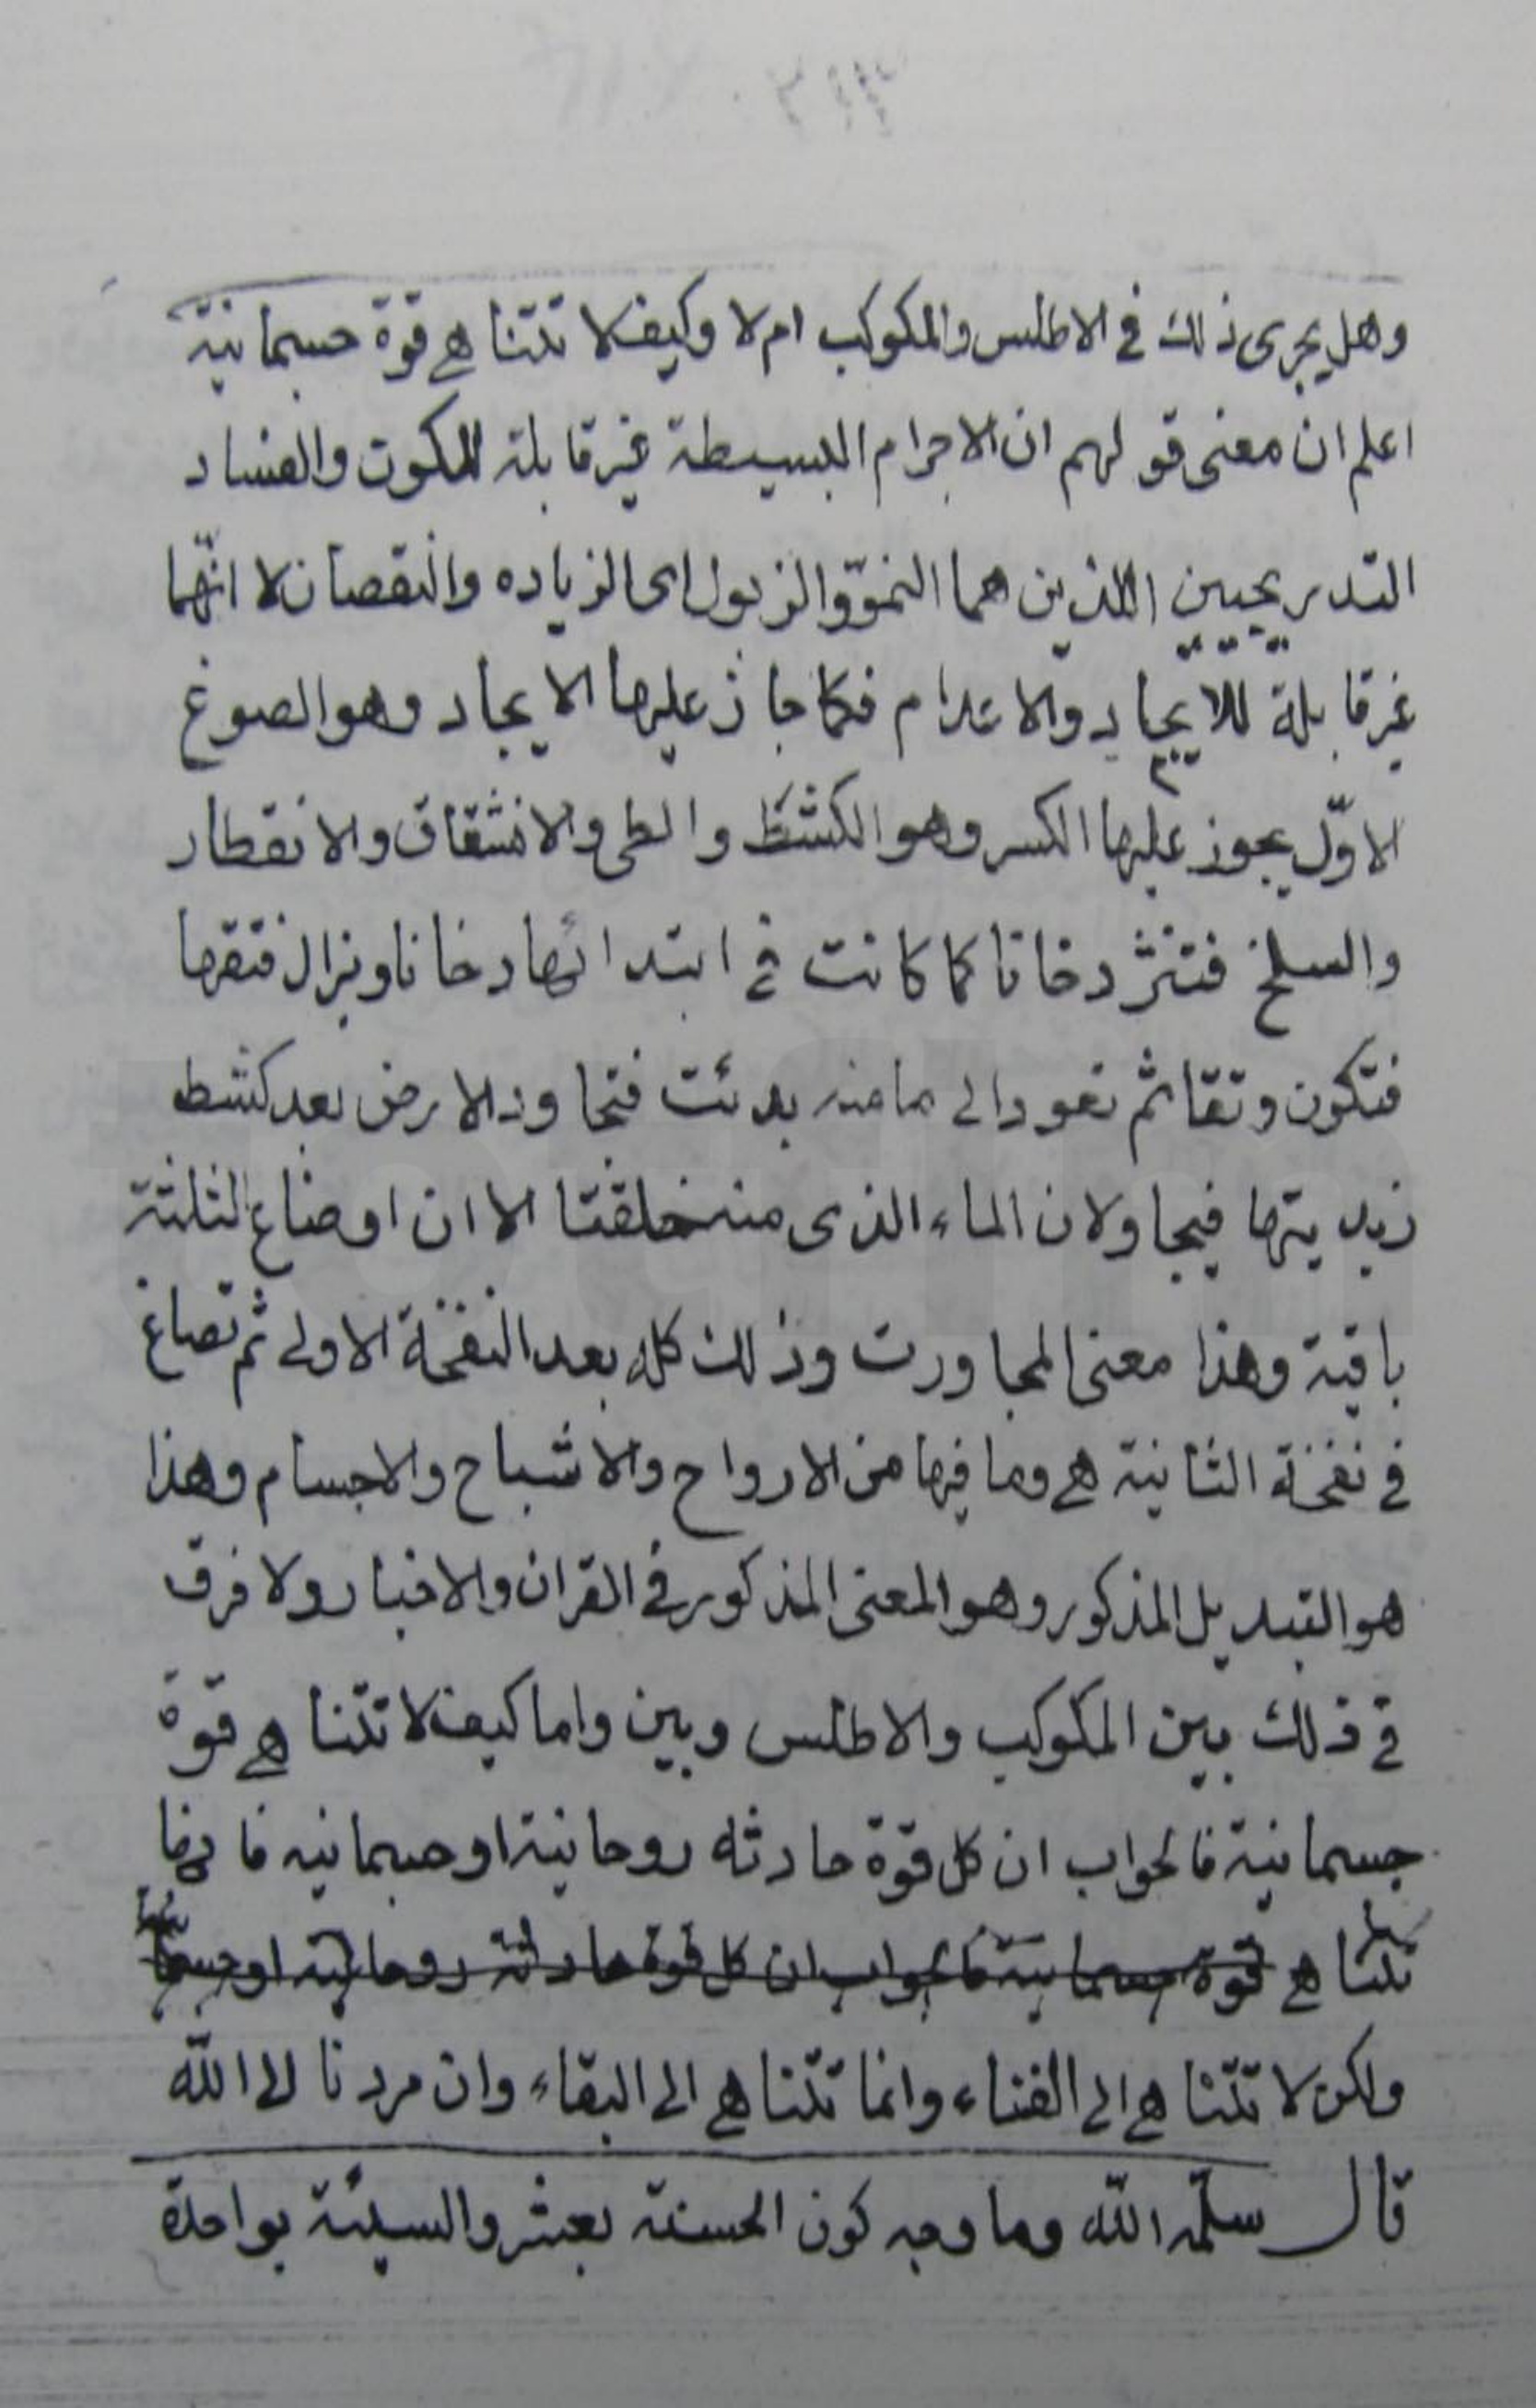 وهل يجرى ذلك فى الاطلس والمكوكب ام لا وكيف لا تتناهى قوة جسمانية
اعلم ان معنى قولهم ان الاجرام البسيطة غير قابلة للكون والفساد
التدريجيين اللذين هما النموّ والزبول اى الزياده والنقصان لا انّها
غير قابلة للايجاد والاعدام فكما جاز عليها الايجاد وهو الصوغ
الاوّل يجوز عليها الكسر وهو الكشط والطى والانشقاق والانفطار
والسلخ فتنثر دخانا كما كانت فى ابتدائها دخانا ويزال فتقها
فتكون وتقا ثم تعود الى ما منه بدئت فتجاور الارض بعد كشط
زبديتها فيجاولان الماء الذى منه خلقتا الا ان اوضاع الثلثة
باقية وهذا معنى المجاورت وذلك كله بعد النفخة الاولى ثم تصاغ
فى نفخة الثانية هى وما فيها من الارواح والاشباح والاجسام وهذا
هو التبديل المذكور وهو المعنى المذكور فى القران والاخبار ولا فرق
فى ذلك بين المكوكب والاطلس وبين واما كيف لا تتناهى قوة
جسمانية فالجواب ان كل قوة حادثه روحانية او جسمانيه فانها
تتناهى قوة جسمانية فالجواب ان كل قوة حادثة روحانية او جسمانية
ولكن لا تتناهى الى الفناء وانما تتناهى الى البقاء وان مردنا الى اللّه
قال سلّمه اللّه وما وجه كون الحسنة بعشر والسيئة بواحدة